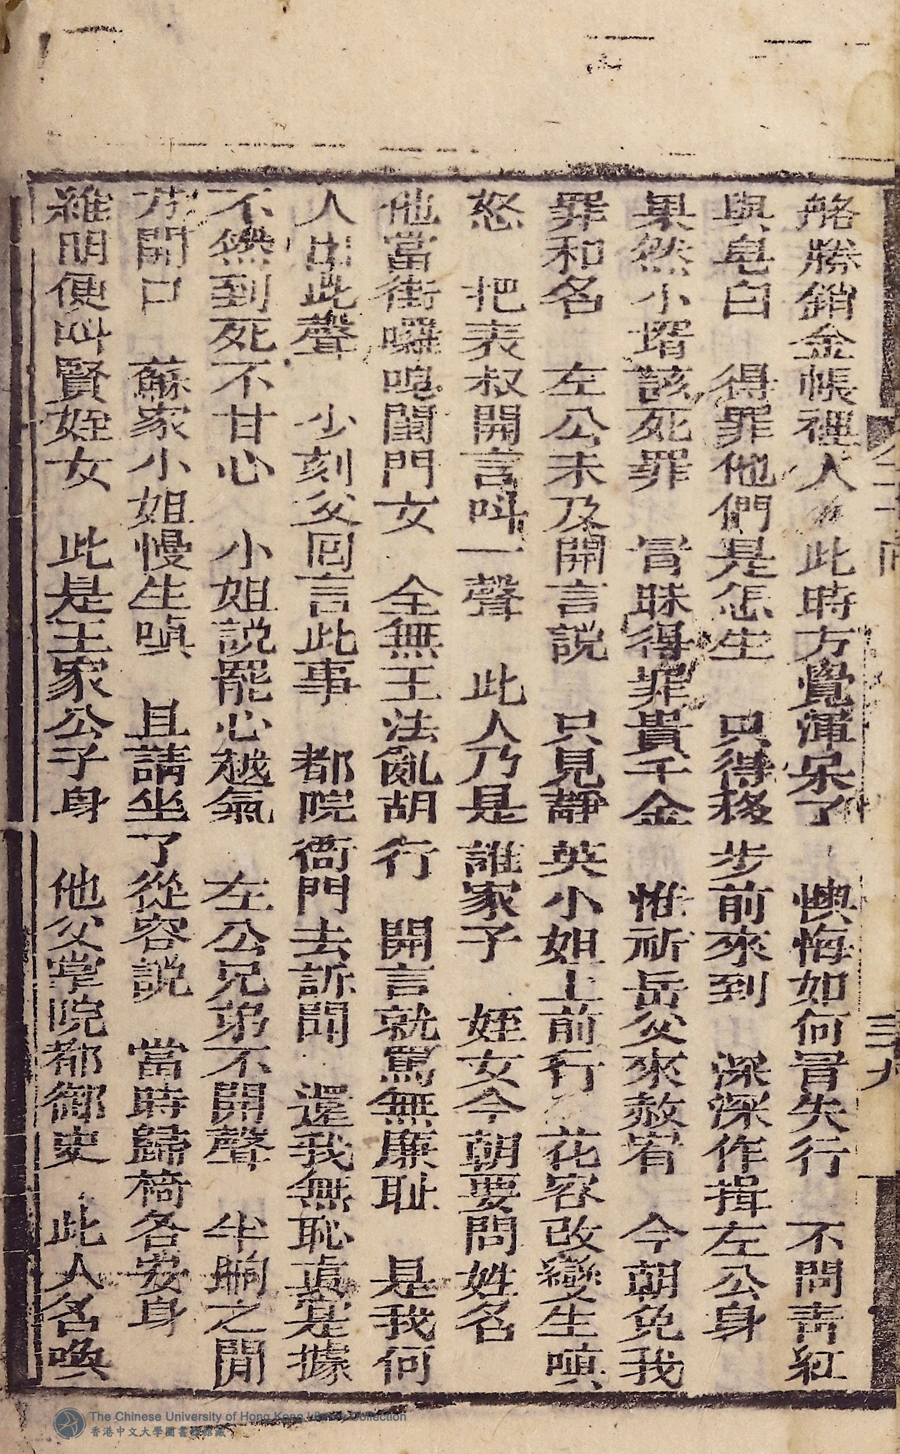 略勝銷金帳裡人 此時方覺渾呆了 懊悔如何冒失行 不問青紅
與皂白 得罪他們是怎生 只得移步前來到 深深作揖左公身
果然小壻該死罪 冒昧得罪貴千金 惟祈岳父來赦宥 今朝免我
罪和名 左公未及開言說 只見靜英小姐上前行 花容改變生嗔
怒 把表叔開言呌一聲 此人乃是誰家子 姪女今朝要問姓名
他當街囉唣閨門女 全無王法亂胡行 開言就罵無廉耻 是我何
人出此聲 少刻父囘言此事 都院衙門去訴聞 還我無恥真實據
不然到死不甘心 小姐說罷心越氣 左公兄弟不開聲 半晌之間
方開口 蘇家小姐慢生嗔 且請坐了從容說 當時歸椅各安身
維明便呌賢姪女 此是王家公子身 他父掌院都御史 此人名喚
二十回
三十九
The Chinese University of Hong Kong Library Collection
香港中文大學圖書館館藏